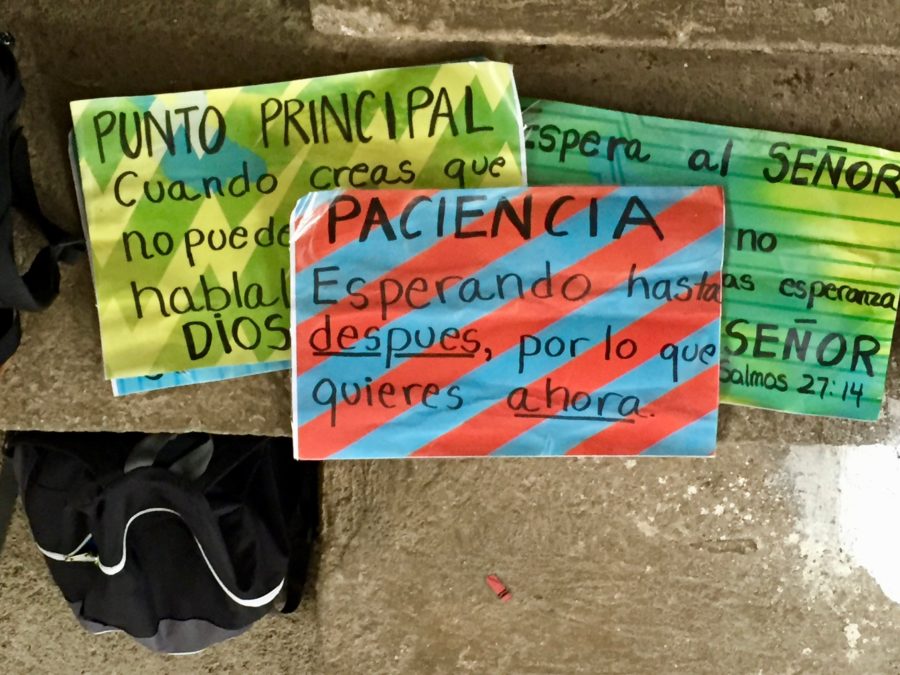 PUNTO PRINCIPAL
Cuando creas que
no puede
habla
DIOS
PACIENCIA
Esperando hasta
despues, por lo que
quieres ahora.
Espera al SEÑOR
no
esperanza
SEÑOR
Salmos 27:14